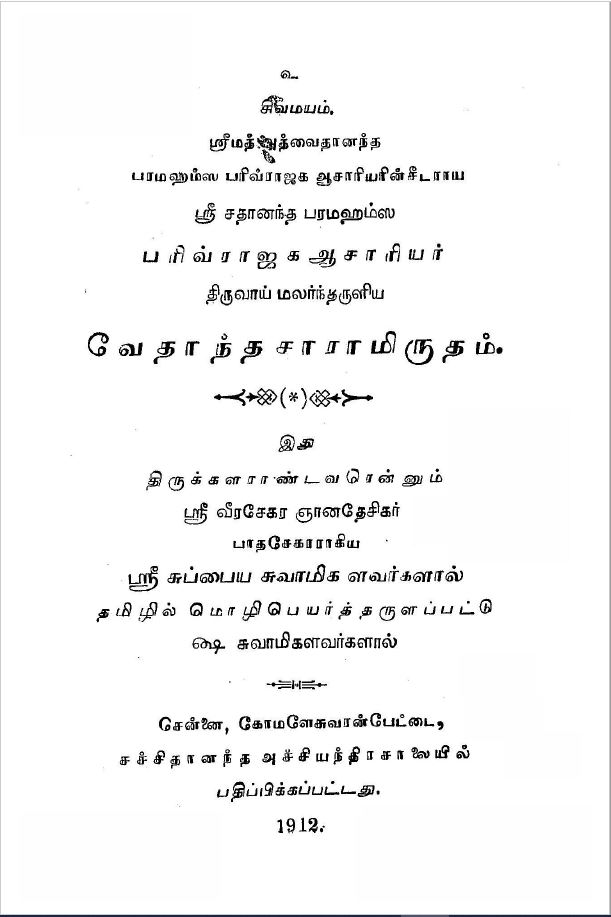 உ
சிவமயம்.
ஸ்ரீமத் அத்வைதானந்த
பரமஹம்ஸ பரிவ்ராஜக ஆசாரியரின்சீடராய
ஸ்ரீ சதானந்த பரமஹம்ஸ
பரிவ்ராஜகஆசாரியர்
திருவாய் மலர்ந்தருளிய
வேதாந்தசாராமிருதம்.
(*)
இது
திருக்களராண்டவரென்னும்
ஸ்ரீ வீரசேகர ஞானதேசிகர்
பாதசேகரராகிய
ஸ்ரீ சுப்பைய சுவாமிக ளவர்களால்
தமிழில் மொழிபெயர்த்தருளப்பட்டு
௸ சுவாமிகளவர்களால்
சென்னை, கோமளேசுவரன்பேட்டை,
சச்சிதானந்த அச்சியந்திரசாலையில்
பதிப்பிக்கப்பட்டது.
1912.